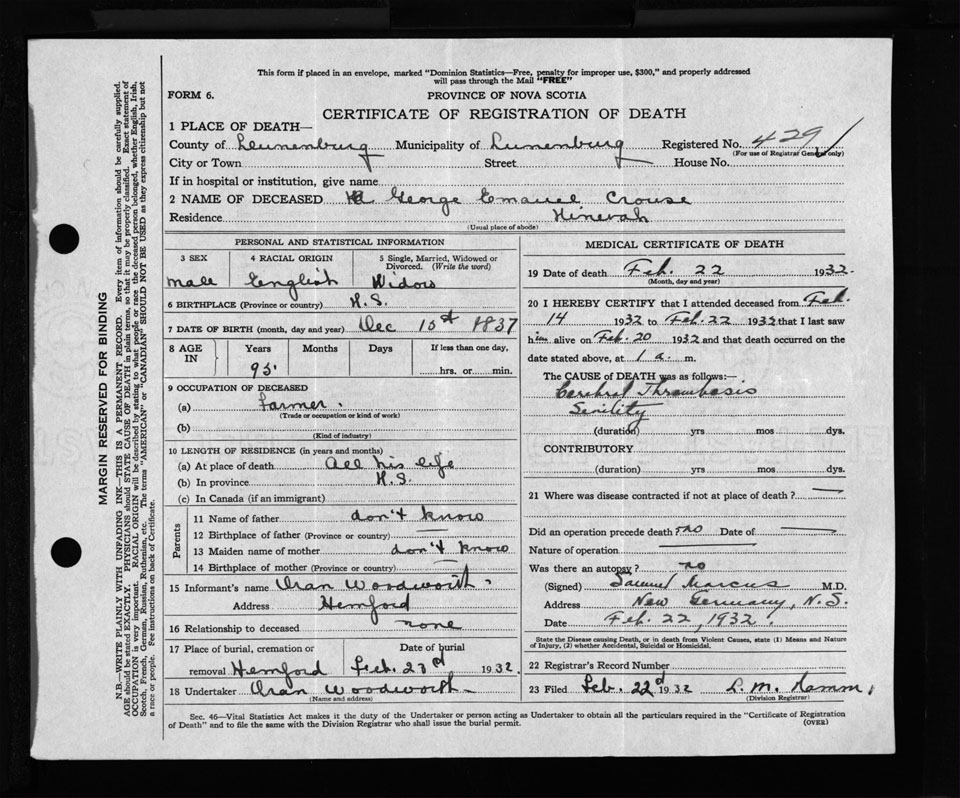 This form if placed in an envelope, marked "Dominion Statistics—Free, penalty for improper use, $300," and properly addressed
will pass through the Mail "FREE"
FORM 6. PROVINCE OF NOVA SCOTIA
CERTIFICATE OF REGISTRATION OF DEATH
1 PLACE OF DEATH—
County of Lunenburg Municipality of Lunenburg Registered No. 429
(For use of Registrar General only)
City or Town Street House No.
If in hospital or institution, give name
2 NAME OF DECEASED George Emanuel Crouse
Residence Ninevah
(Usual place of abode)
PERSONAL AND STATISTICAL INFORMATION
3 SEX 4 RACIAL ORIGIN 5 Single, Married, Widowed or
Divorced. (Write the word)
Male English Widow
6 BIRTHPLACE (Province or country) N.S.
7 DATE OF BIRTH (month, day and year) Dec 15st 1837
8 AGE IN Years Months Days If less than one day,
95 hrs. or min.
9 OCCUPATION OF DECEASED
(a) Farmer.
(Trade or occupation or kind of work)
(b)
(Kind of industry)
10 LENGTH OF RESIDENCE (in years and months)
(a) At place of death all his life
(b) In province N.S.
(c) In Canada (if an immigrant)
Parents
11 Name of father don't know
12 Birthplace of father (Province or country) —
13 Maiden name of mother don't know
14 Birthplace of mother (Province or country) —
15 Informant's name Oran Woodworth
Address Hemford
16 Relationship to deceased none
17 Place of burial, cremation or Date of burial
removal Hemford Feb. 23rd 1932
18 Undertaker Oran Woodworth
(Name and address)
MEDICAL CERTIFICATE OF DEATH
19 Date of death Feb. 22 1932.
(Month, day and year)
20 I HEREBY CERTIFY that I attended deceased from Feb.
14 1932 to Feb. 22 1932 that I last saw
him alive on Feb. 20 1932 and that death occurred on the
date stated above, at 1 a. m.
The CAUSE OF DEATH was as follows:—
Cerebral Thrombosis
Senility
(duration) yrs mos dys.
CONTRIBUTORY
(duration) yrs mos dys.
21 Where was disease contracted if not at place of death? —
Did an operation precede death? no Date of —
Nature of operation —
Was there an autopsy? no
(Signed) Samuel Marcus M.D.
Address New Germany, N.S.
Date Feb. 22, 1932.
State the Disease causing Death, or in death from Violent Causes, state (1) Means and Nature
of Injury, (2) whether Accidental, Suicidal or Homicidal.
22 Registrar's Record Number
23 Filed Feb. 22d 1932 L. M.
(Division Registrar)
Sec. 46—Vital Statistics Act makes it the duty of the Undertaker or person acting as Undertaker to obtain all the particulars required in the "Certificate of Registration
of Death" and to file the same with the Division Registrar who shall issue the burial permit. (OVER)
MARGIN RESERVED FOR BINDING
N.B.—WRITE PLAINLY WITH UNFADING INK—THIS IS A PERMANENT RECORD. Every item of information should be carefully supplied.
AGE should be stated EXACTLY. PHYSICIANS should STATE CAUSE OF DEATH in plain terms, so that it may be properly classified. Exact statement of
OCCUPATION is very important. RACIAL ORIGIN will be described by stating to what people or race the deceased person belonged, whether English, Irish,
Scotch, French, German, Russian, Ruthenian, etc. The terms "AMERICAN" or "CANADIAN" SHOULD NOT BE USED as they express citizenship but not
a race or people. See instructions on back of Certificate.